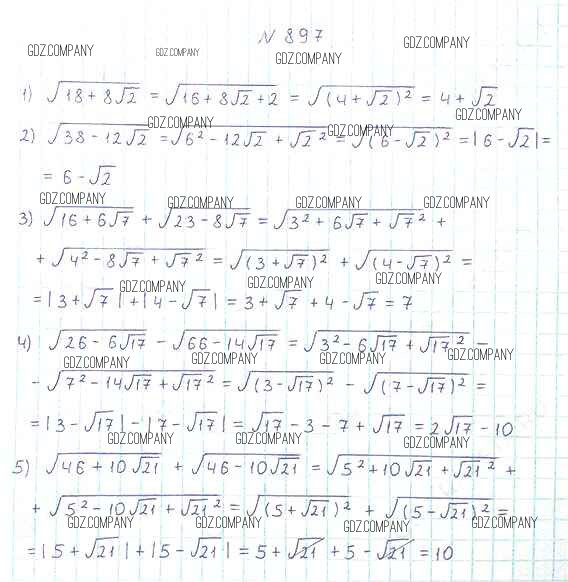 N 897
GDZ.COMPANY GDZ.COMPANY GDZ.COMPANY GDZ.COMPANY
1) √(18 + 8√2) = √(16 + 8√2 + 2) = √((4 + √2)²) = 4 + √2
GDZ.COMPANY GDZ.COMPANY GDZ.COMPANY
2) √(38 - 12√2) = √(6² - 12√2 + √2²) = √((6 - √2)²) = |6 - √2| =
= 6 - √2
GDZ.COMPANY GDZ.COMPANY GDZ.COMPANY GDZ.COMPANY
3) √(16 + 6√7) + √(23 - 8√7) = √(3² + 6√7 + √7²) +
+ √(4² - 8√7 + √7²) = √((3 + √7)²) + √((4 - √7)²) =
GDZ.COMPANY GDZ.COMPANY GDZ.COMPANY
= |3 + √7| + |4 - √7| = 3 + √7 + 4 - √7 = 7
4) √(26 - 6√17) - √(66 - 14√17) = √(3² - 6√17 + √17²) -
GDZ.COMPANY GDZ.COMPANY GDZ.COMPANY GDZ.COMPANY
- √(7² - 14√17 + √17²) = √((3 - √17)²) - √((7 - √17)²) =
= |3 - √17| - |7 - √17| = √17 - 3 - 7 + √17 = 2√17 - 10
GDZ.COMPANY GDZ.COMPANY GDZ.COMPANY
5) √(46 + 10√21) + √(46 - 10√21) = √(5² + 10√21 + √21²) +
+ √(5² - 10√21 + √21²) = √((5 + √21)²) + √((5 - √21)²) =
GDZ.COMPANY GDZ.COMPANY GDZ.COMPANY GDZ.COMPANY
= |5 + √21| + |5 - √21| = 5 + √21 + 5 - √21 = 10